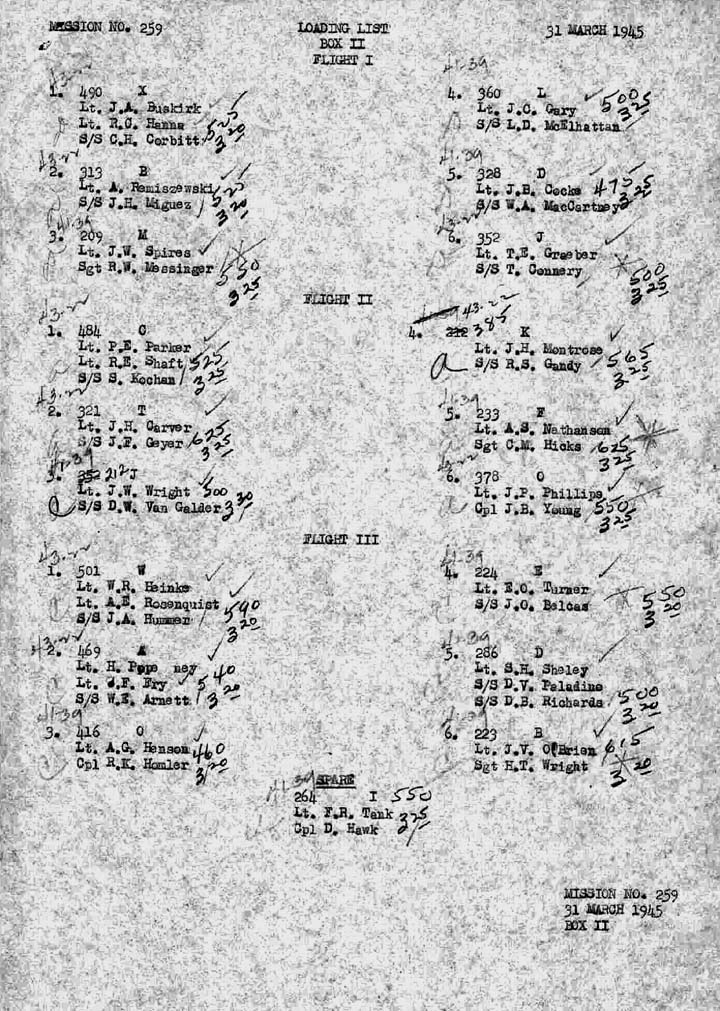 MISSION NO. 259
LOADING LIST
31 MARCH 1945
BOX II
FLIGHT I
43-22
1. 490 X
Lt. J.A. Buskirk
Lt. R.C. Hanna
S/S C.H. Corbitt 525
3 20
43-22
2. 313 B
Lt. A. Remiszewski
S/S J.H. Miguez 525
3 20
41-39
3. 209 M
Lt. J.W. Spires
Sgt R.W. Messinger 550
3 25
41-39
4. 360 L
Lt. J.C. Gary 500
S/S L.D. McElhattan 3 25
41-39
5. 328 D
Lt. J.B. Cocke 475
S/S W.A. MacCartney 3 25
43-22
6. 352 J
Lt. T.E. Graeber
S/S T. Connery 500
3 25
FLIGHT II
43-22
1. 484 C
Lt. P.E. Parker
Lt. R.E. Shaft 525
S/S S. Kochan 3 25
43-22
2. 321 T
Lt. J.H. Carver
S/S J.F. Geyer 625
3 25
41-39
3. 352 212 J
Lt. J.W. Wright 500
S/S D.W. Van Galder 3 30
43-22
4. 212 385 K
Lt. J.H. Montrose
a S/S R.S. Gandy 565
3 25
41-39
5. 233 F
Lt. A.S. Nathanson
Sgt C.M. Hicks 625
3 25
43-22
6. 378 O
Lt. J.P. Phillips
Cpl J.B. Young 550
3 25
FLIGHT III
43-22
1. 501 W
Lt. W.R. Heinke
Lt. A.E. Rosenquist
S/S J.A. Hummer 590
3 20
43-22
2. 469 A
Lt. H. Pope ney
Lt. J.F. Fry 540
S/S W.E. Arnett 3 20
41-39
3. 416 O
Lt. A.G. Henson 460
Cpl R.K. Homler 3 20
41-39
4. 224 E
Lt. E.O. Turner
S/S J.O. Belcas 550
3 20
41-39
5. 286 D
Lt. S.H. Sheley
S/S D.V. Paladino
S/S D.B. Richards 500
3 20
41-39
6. 223 B
Lt. J.V. O'Brien 615
Sgt H.T. Wright
3 20
41-39
SPARE
264 I 550
Lt. F.R. Tank 3 25
Cpl D. Hawk
MISSION NO. 259
31 MARCH 1945
BOX II